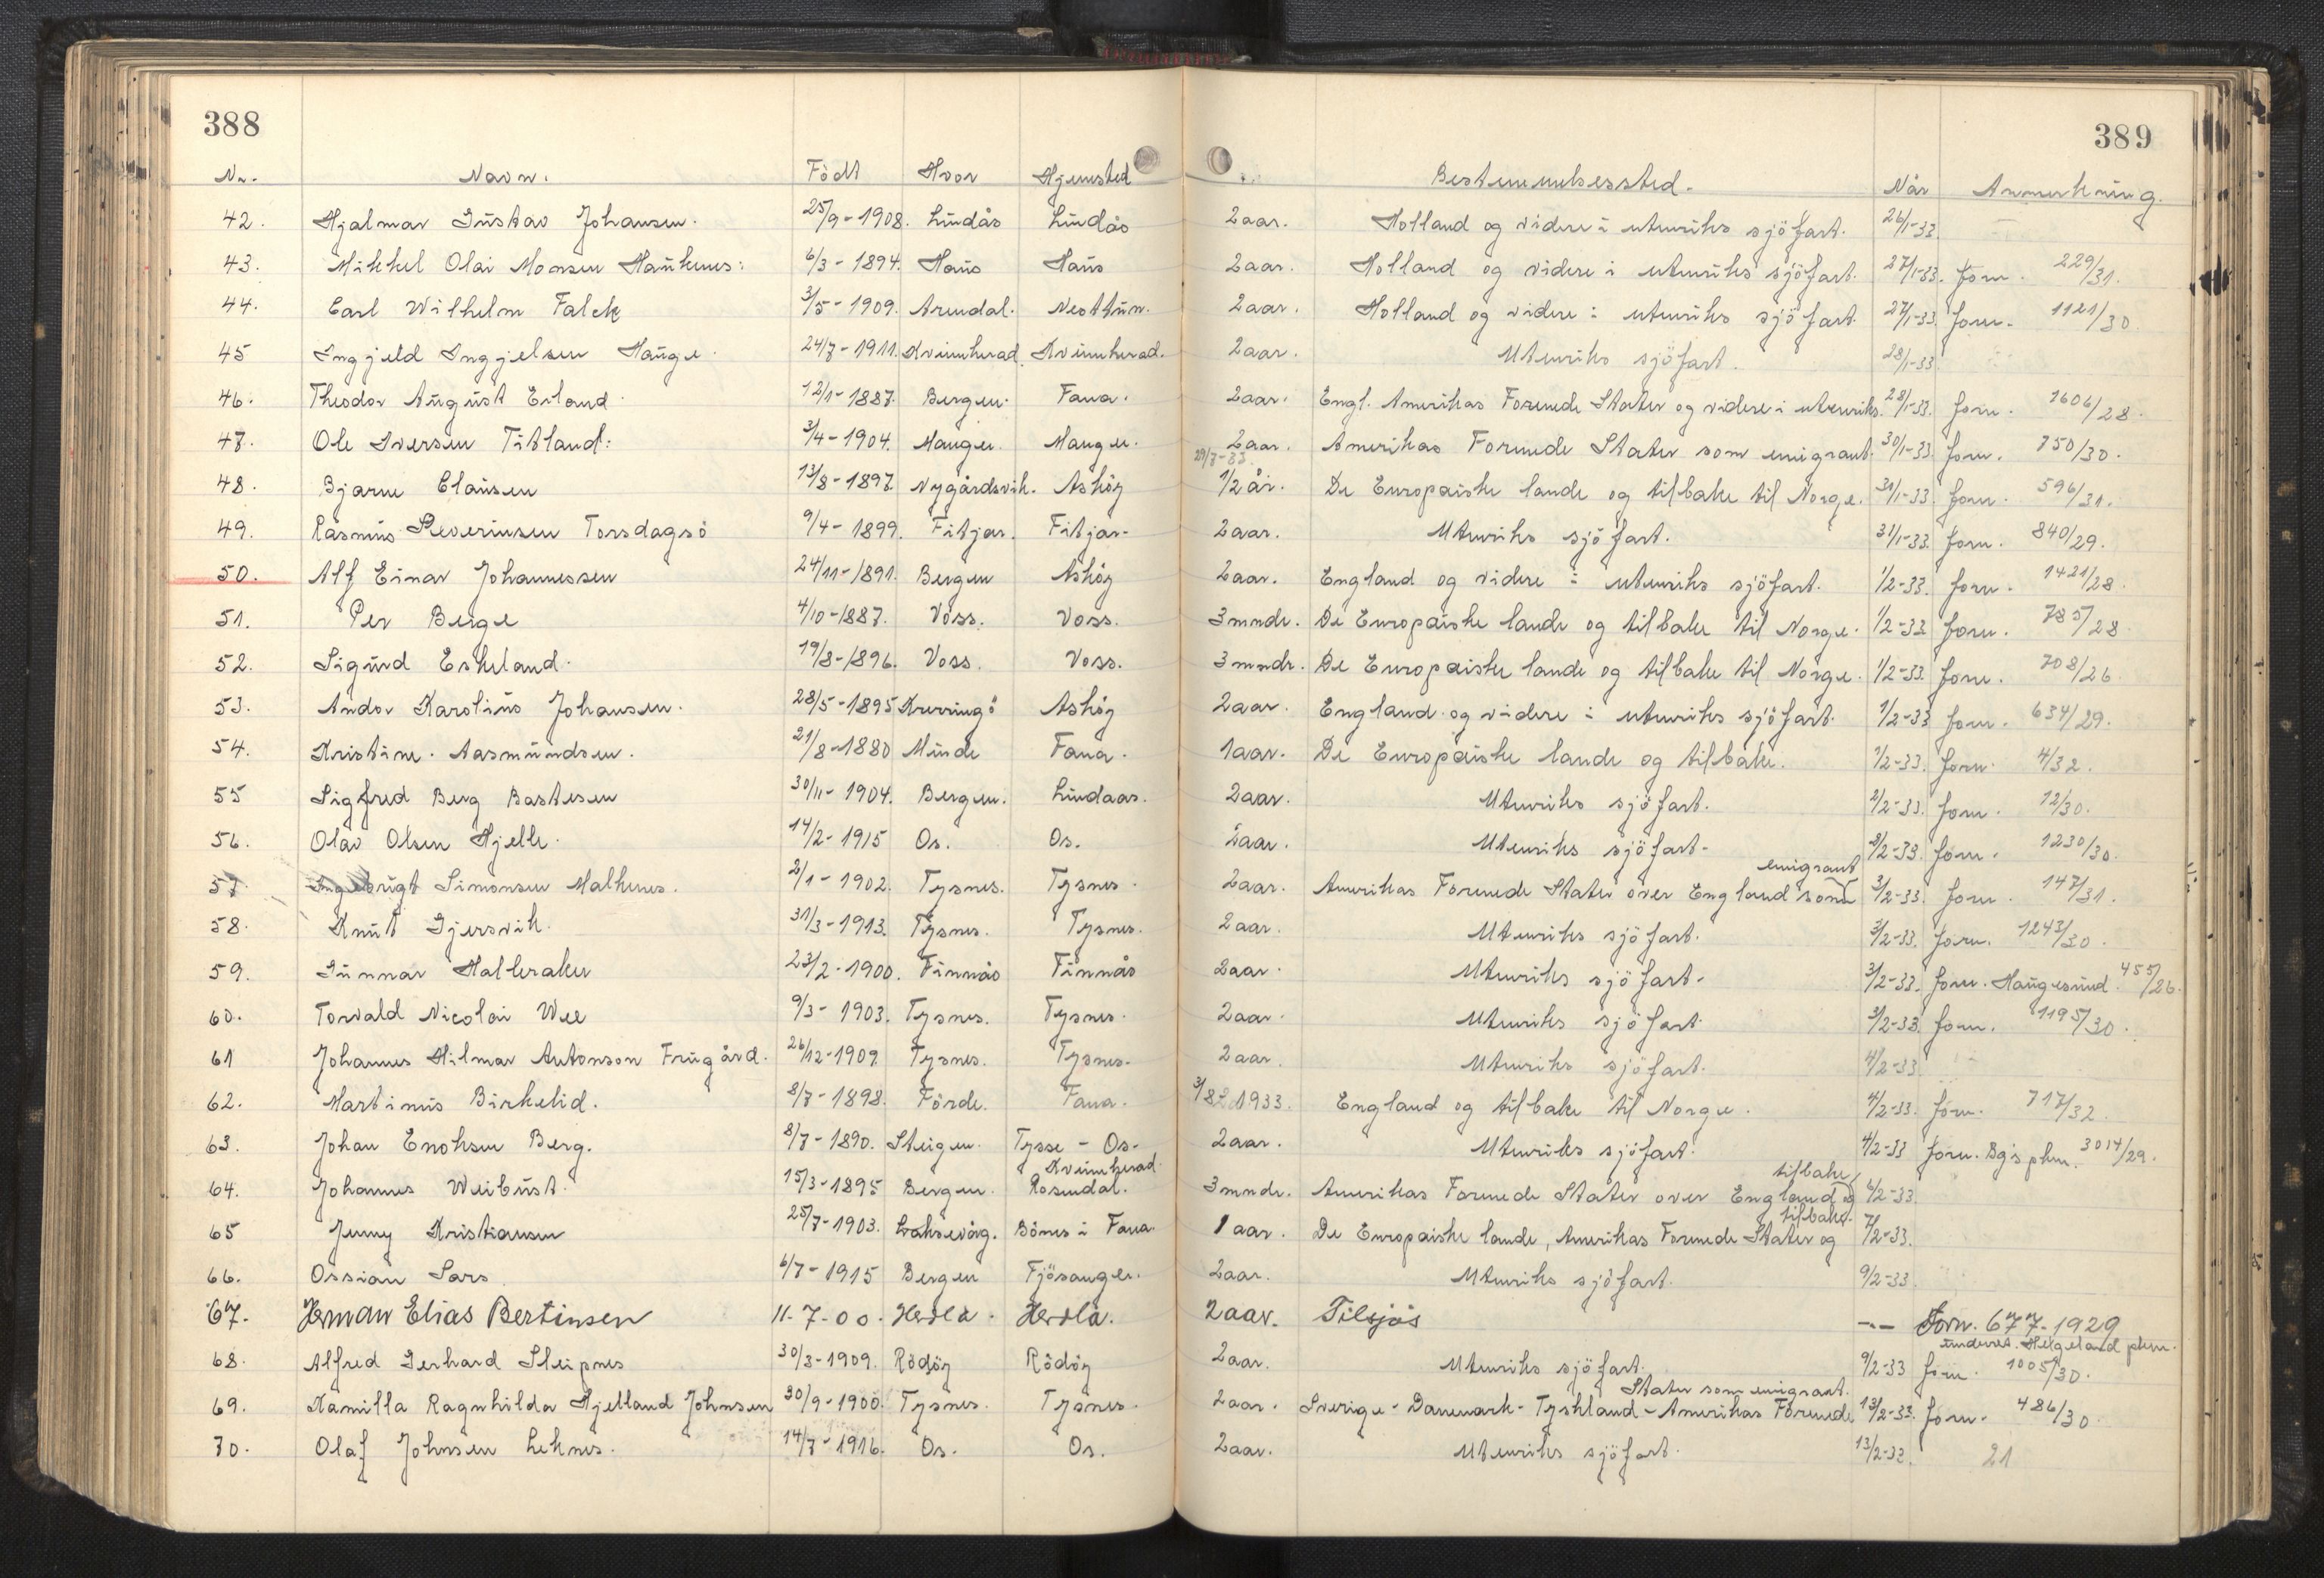 388
389
Nr. Navn. Födt Hvor Hjemsted Bestemmelsessted. Når Anmerkning.
42. Hjalmar Gustav Johansen. 25/9-1908. Lindås Lindås 2 aar. Holland og videre i utenriks sjöfart. 26/1-33.
43. Mikkel Olai Monsen Haukenes: 6/3-1894. Haus Haus 2 aar. Holland og videre i utenriks sjöfart. 27/1-33. forn. 229/31.
44. Carl Wilhelm Falck 3/5-1909. Arendal. Nesttun. 2 aar. Holland og videre i utenriks sjöfart. 27/1-33. forn. 1121/30
45 Ingjeld Ingjelsen Hauge. 24/7-1911. Kvinnherad Kvinnherad. 2 aar. Utenriks sjöfart. 28/1-33
46. Theodor August Erland. 12/1-1887. Bergen. Fana. 2 aar. Engl. Amerikas Forenede Stater og videre i utenriks. 28/1-33. forn. 1606/28.
47. Ole Iversen Titland: 3/4-1904. Manger. Manger. 2 aar. Amerikas Forenede Stater som emigrant. 30/1-33. forn. 750/30.
29/7-33.
48. Bjarne Clausen 13/8-1897. Nygårdsvik. Askøy 1/2 år. De Europæiske lande og tilbake til Norge. 31/1-33. forn. 596/31.
49. Rasmus Severinsen Torsdagsö 9/4-1899. Fitjar. Fitjar. 2 aar. Utenriks sjöfart. 31/1-33. forn. 840/29.
50. Alf Einar Johannessen 24/11-1891. Bergen Askøy 2 aar. England og videre i utenriks sjöfart. 1/2-33. forn. 1421/28.
51. Per Berge 4/10-1887. Voss. Voss. 3 mndr. De Europæiske lande og tilbake til Norge. 1/2-33 forn. 785/28
52. Sigurd Eskeland. 19/8-1896. Voss. Voss. 3 mndr. De Europæiske lande og tilbake til Norge. 1/2-33. forn. 708/26
53. Andor Karolius Johansen. 28/5-1895 Kjerringö Askøy 2 aar. England og videre i utenriks sjöfart. 1/2-33 forn. 634/29.
54. Kristine. Aasmundsen. 21/8-1880 Minde Fana. 1 aar. De Europæiske lande og tilbake. 1/2-33. forn. 4/32.
55 Sigfred Berg Bastesen 30/11-1904. Bergen. Lindaas. 2 aar. Utenriks sjöfart. 2/2-33. forn. 12/30.
56. Olav Olsen Hjelle. 14/2-1915 Os. Os. 2 aar. Utenriks sjöfart. 2/2-33. forn. 1230/30.
emigrant
57. Ingebrigt Simonsen Malkenes. 2/1-1902. Tysnes. Tysnes. 2 aar. Amerikas Forenede Stater over England som 3/2-33. forn. 147/31.
58. Knut Gjersvik. 31/3-1913. Tysnes. Tysnes. 2 aar. Utenriks sjöfart. 3/2-33. forn. 1243/30.
59. Gunnar Halleraker 23/2-1900. Finnås Finnås 2 aar. Utenriks sjöfart. 3/2-33. forn. Haugesund. 455/26.
60. Torvald Nicolai Wee 9/3-1903. Tysnes. Tysnes. 2 aar. Utenriks sjöfart. 3/2-33. forn. 1195/30.
61 Johannes Hilmar Antonson Frugård. 26/12-1909. Tysnes. Tysnes. 2 aar. Utenriks sjöfart. 4/2-33.
62. Martinus Birkelid. 8/7-1898. Förde. Fana. 3/8 1933. England og tilbake til Norge. 4/2-33. forn. 717/32.
63. Johan Enoksen Berg. 8/7-1890. Steigen. Tysse - Os. 2 aar. Utenriks sjöfart. 4/2-33 forn. Bgs pkm. 3014/29.
Kvinnherad tilbake
64. Johannes Weibust. 15/3-1895 Bergen. Rosendal. 3 mndr. Amerikas Forenede Stater over England og 6/2-33.
tilbake.
65 Jenny Kristiansen 25/7-1903. Laksevåg. Bönes i Fana. 1 aar. De Europæiske lande, Amerikas Forenede Stater og 7/2-33.
66. Ossian Sars 6/7-1915 Bergen Fjösanger. 2 aar. Utenriks sjöfart. 9/2-33.
67. Herman Elias Bertinsen 11-7-00. Herdla. Herdla. 2 aar. Tilsjøs -"- Forn. 677-1929
68. Alfred Gerhard Sleipnes 30/3-1909. Rödöy Rödöy 2 aar. Utenriks sjöfart. 9/2-33 forn. Helgeland pkm. 1005/30.
Stater som emigrant.
69. Kamilla Ragnhilda Hjelland Johnsen 30/9-1900. Tysnes. Tysnes. 2 aar. Sverige - Danmark - Tyskland - Amerikas Forenede 13/2-33. forn. 486/30.
70. Olaf Johnsen Leknes. 14/7-1916. Os. Os. 2 aar. Utenriks sjöfart. 13/2-33. 21